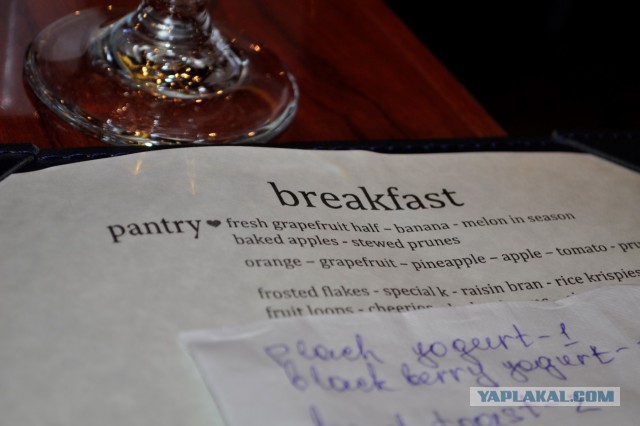 breakfast
pantry ❤ fresh grapefruit half – banana - melon in season
baked apples - stewed prunes
orange – grapefruit – pineapple – apple – tomato - pru
frosted flakes - special k - raisin bran - rice krispies
fruit loops - cheerios
peach yogurt - 1
black berry yogurt -
toast - 2
YAPLAKAL.COM